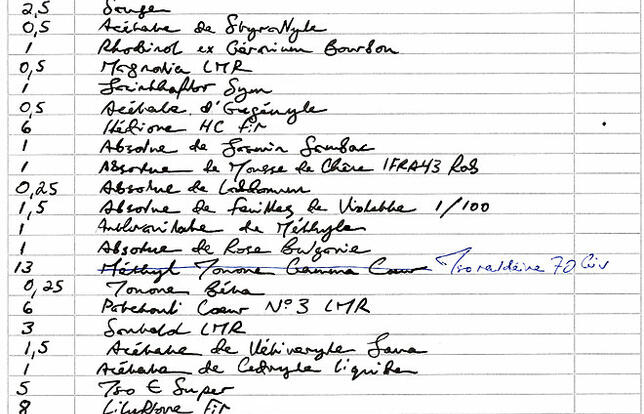 2,5 Sauge
0,5 Acétate de Styrallyle
1 Rhodinol ex Géranium Bourbon
0,5 Magnolia LMR
1 Sym
0,5 Acétate d'Eugényle
6 Hédione HC Fir
1 Absolue de Jasmin Sambac
1 Absolue de Mousse de Chêne IFRA43 Rob
0,25 Absolue de Labdanum
1,5 Absolue de feuilles de Violette 1/100
1 Anthranilate de Méthyle
1 Absolue de Rose Bulgarie
13 Méthyl Ionone Gamma Coeur Isoraldéine 70 Giv
0,25 Ionone Béta
6 Patchouli Coeur N°3 LMR
3 Santal LMR
1,5 Acétate de Vétiveryle Java
1 Acétate de Cédryle liquide
5 Iso E Super
8 Fir